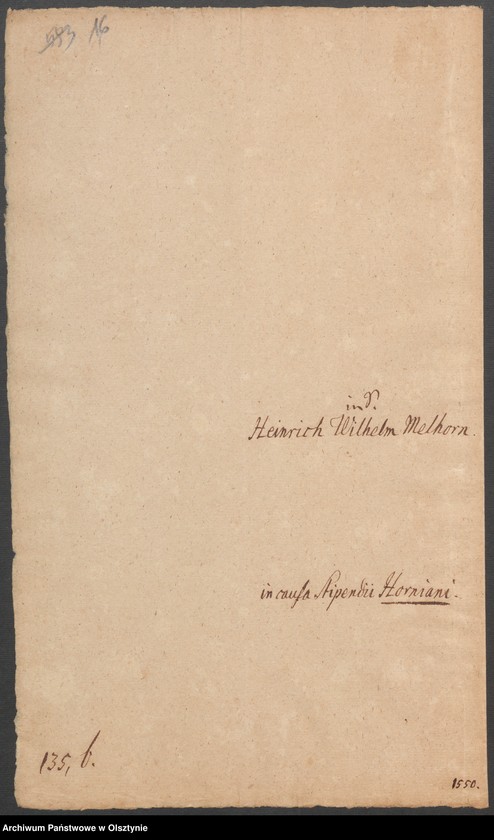 16
ind.
Heinrich Wilhelm Melhorn.
in causa Stipendii Horniani.
135, b.
1550.
Archiwum Państwowe w Olsztynie